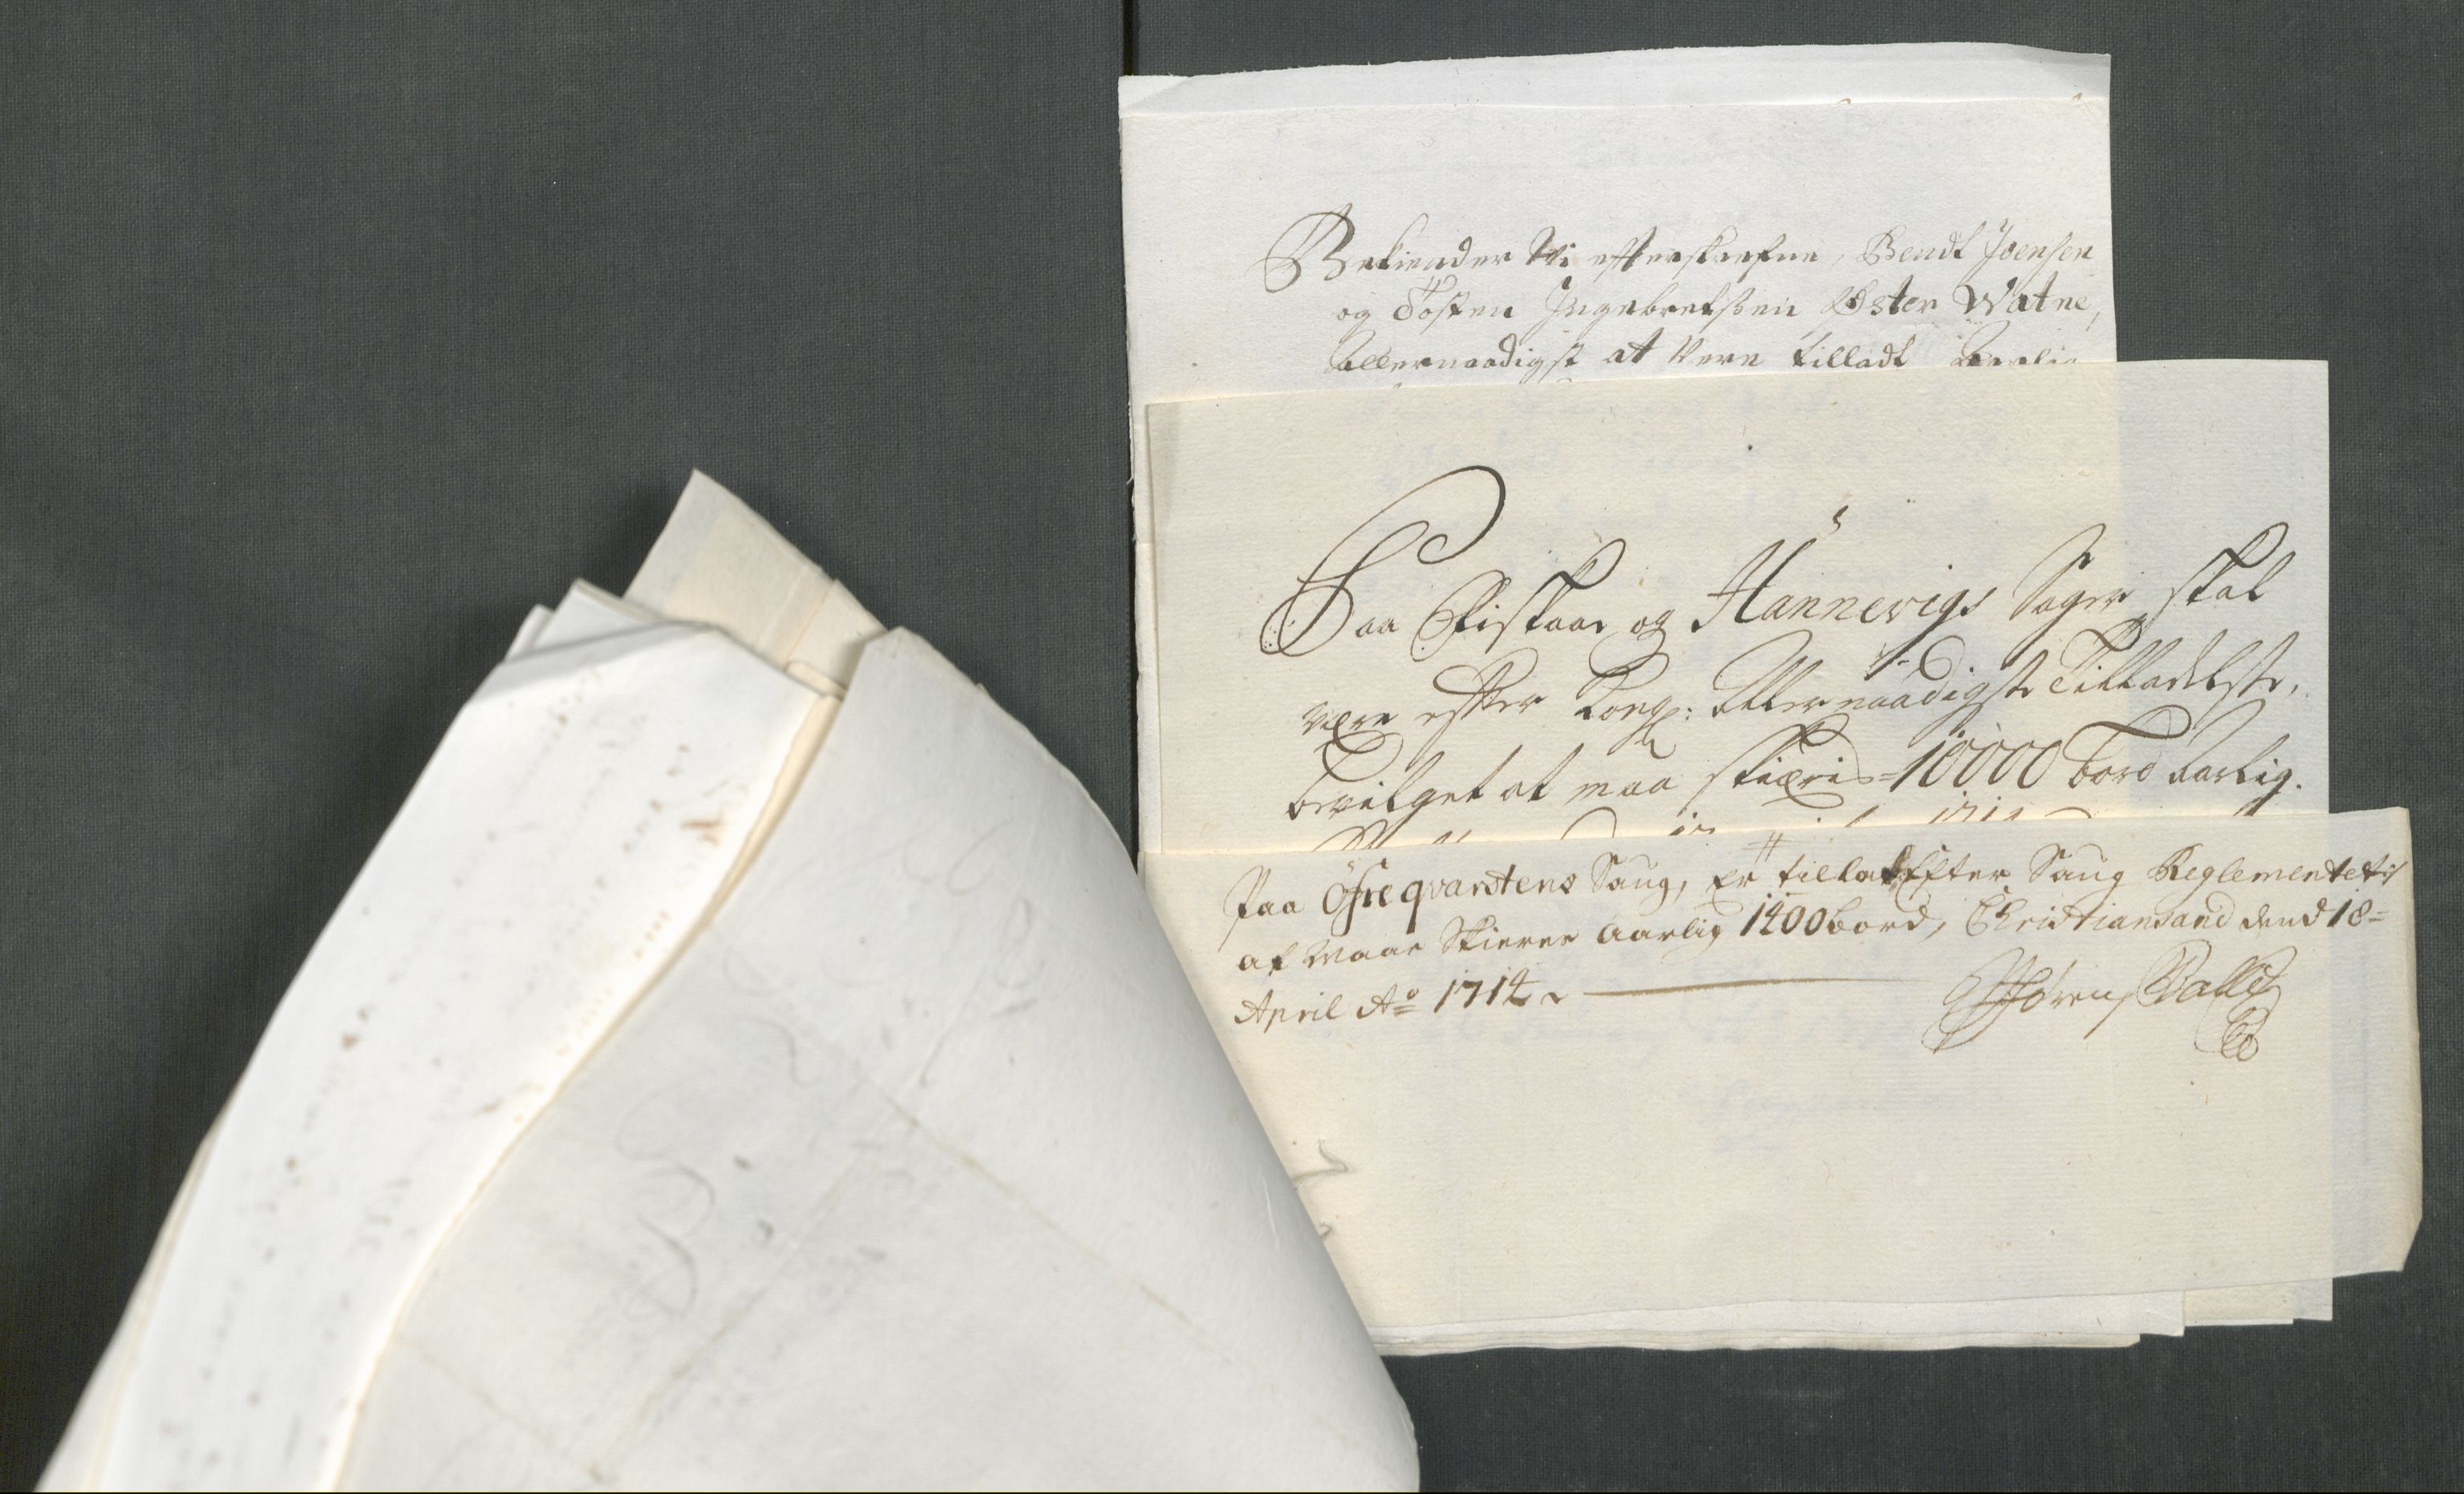 Bekiender Vi efterskrefne, Bendt Joensen
og Tosten Ingebretsen Øster Watne,
allernaadigst at Vere tilladt Aarlig
Paa Fiskaae og Hannevigs Sager skal
være efter Kongl: Allernaadigste Tilladelse,
bevilget at maa skieris 10000 bord Aarlig.
Paa Öfreqvarstens Saug, Er tilladt Efter Saug Reglementet
at Maae Skieres Aarlig 1400 bord, Christiansand dend 18=
April Ao 1714
Sören Balle